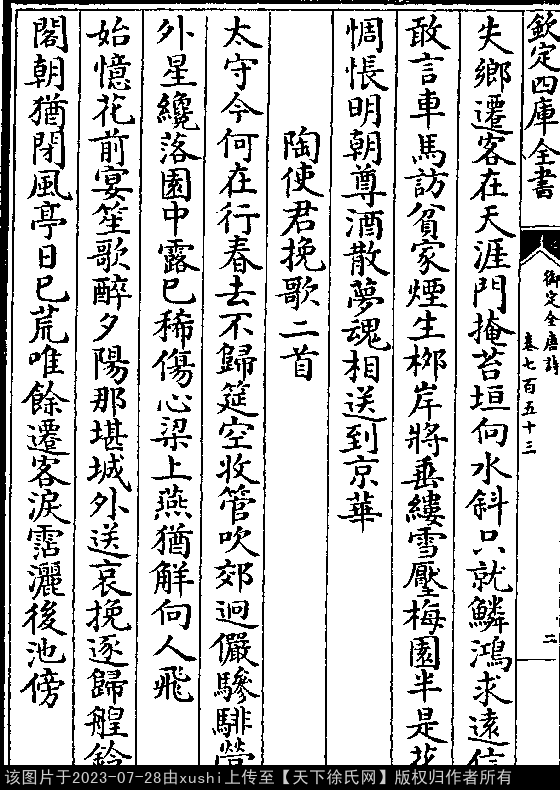 欽定四庫全書
御定全唐詩
卷七百五十三
二
失鄉遷客在天涯門掩苔垣向水斜只就鱗鴻求遠信
敢言車馬訪貧家煙生栁岸將垂縷雪壓梅園半是花
惆悵明朝尊酒散夢魂相送到京華
陶使君挽歌二首
太守今何在行春去不歸筵空收管吹郊迥儼驂騑營
外星纔落園中露已稀傷心梁上燕猶解向人飛
始憶花前宴笙歌醉夕陽那堪城外送哀挽逐歸艎鈴
閣朝猶閉風亭日已荒唯餘遷客淚霑灑後池傍
该图片于2023-07-28由xushi上传至【天下徐氏网】版权归作者所有